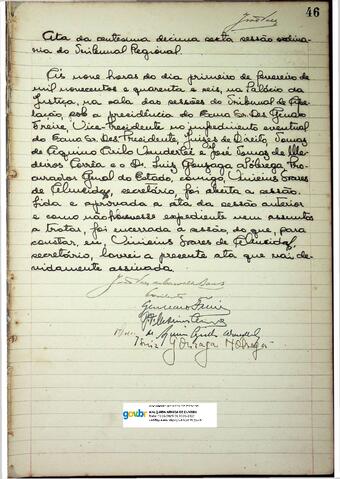 46
Ata da centesima decima sexta sessão ordina-
ria do Tribunal Regional.
Às nove horas do dia primeiro de fevereiro de
mil novecentos e quarenta e seis, no Palácio da
Justiça, na sala das sessões do Tribunal de Ape-
lação, sob a presidência do Exmo Sr. Des Genaro
Freire, Vice-Presidente no impedimento eventual
do Exmo Sr. Des Presidente, Juizes de Direito, Tomaz
de Aquino Cirilo Wanderlei e José Tomaz de Me-
deiros Correia e o Dr. Luiz Gonzaga Nobrega Pro-
curador Geral do Estado, comigo, Vinicius Soares
de Almeida, secretário, foi aberta a sessão.
Lida e aprovada a ata da sessão anterior
e como não houvesse expediente nem assuntos
a tratar, foi encerrada a sessão, do que, para
constar, eu, Vinicius Soares de Almeida,
secretário, lavrei a presente ata que vai de-
vidamente assinada.
Genaro Freire
Luiz Gonzaga Nobrega
gov.br